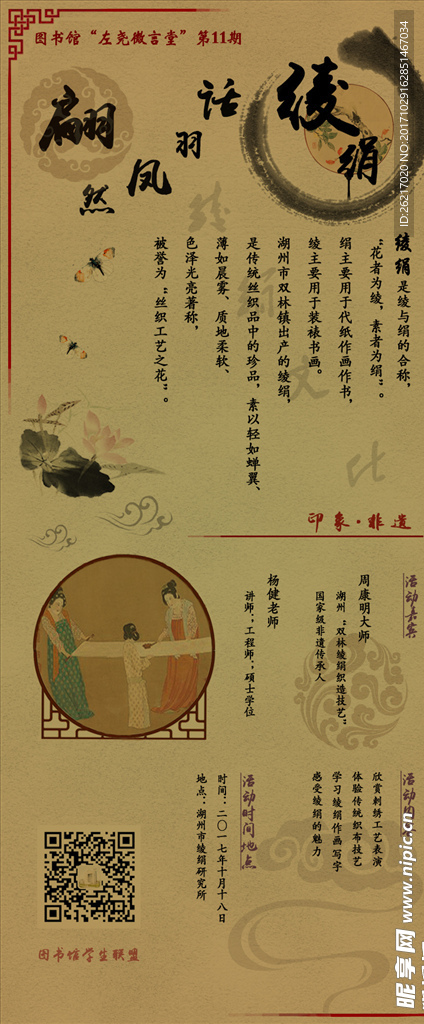 图书馆“左尧微言堂”第11期
绫绢
话羽凤
翩然
绫绢是绫与绢的合称，
“花者为绫，素者为绢”。
绢主要用于代纸作画作书，
绫主要用于装裱书画。
湖州市双林镇出产的绫绢，
是传统丝织品中的珍品，素以轻如蝉翼、
薄如晨雾、质地柔软、
色泽光亮著称，
被誉为“丝织工艺之花”。
印象·非遗
活动嘉宾
周康明大师
湖州“双林绫绢织造技艺”
国家级非遗传承人
杨健老师
讲师；工程师；硕士学位
欣赏刺绣工艺表演
体验传统织布技艺
学习绫绢作画写字
感受绫绢的魅力
活动时间地点
时间：二〇一七年十月十八日
地点：湖州市绫绢研究所
图书馆学生联盟
ID:26217020 NO:20171029162851467034
昵享网 www.nipic.cn